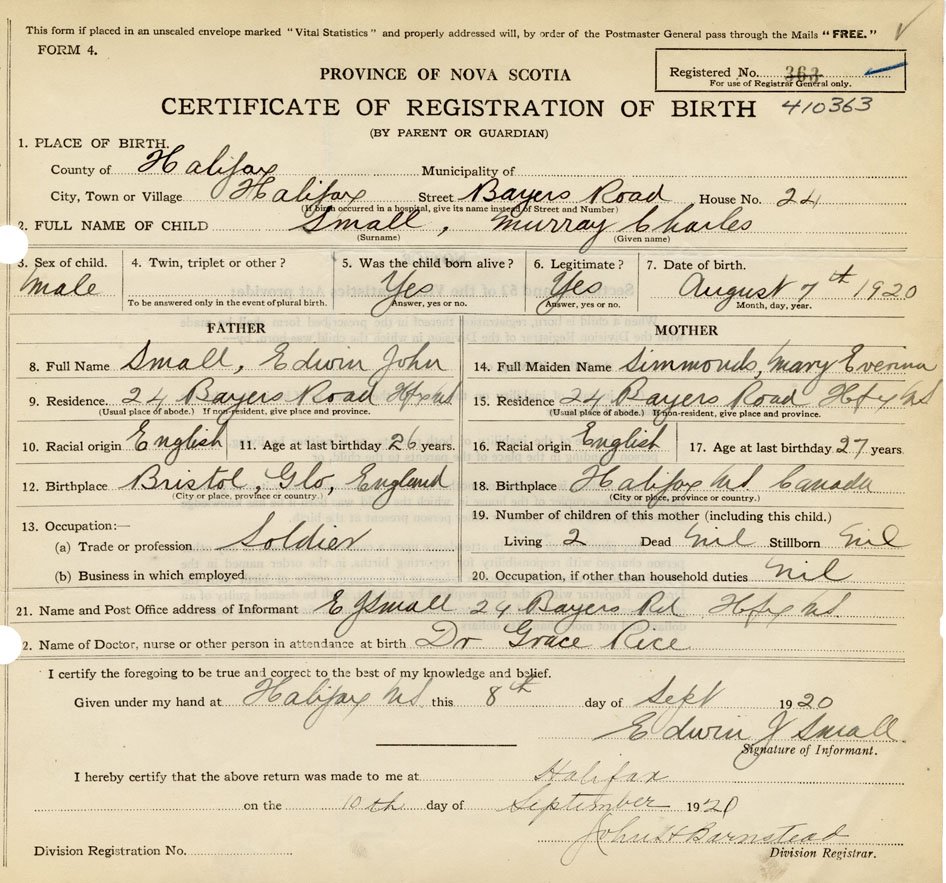 This form if placed in an unsealed envelope marked "Vital Statistics" and properly addressed will, by order of the Postmaster General pass through the Mails "FREE."
FORM 4.
Registered No. 363
For use of Registrar General only.
PROVINCE OF NOVA SCOTIA
CERTIFICATE OF REGISTRATION OF BIRTH 410363
(BY PARENT OR GUARDIAN)
1. PLACE OF BIRTH.
County of Halifax Municipality of
City, Town or Village Halifax Street Bayers Road House No. 24
(If birth occurred in a hospital, give its name instead of Street and Number)
2. FULL NAME OF CHILD Small, Murray Charles
(Surname) (Given name)
3. Sex of child. 4. Twin, triplet or other? 5. Was the child born alive? 6. Legitimate? 7. Date of birth.
male Yes Yes August 7th 1920
To be answered only in the event of plural birth. Answer, yes or no. Answer, yes or no. Month, day, year.
FATHER
8. Full Name Small, Edwin John
9. Residence. 24 Bayers Road Hfx NS
(Usual place of abode.) If non-resident, give place and province.
10. Racial origin English 11. Age at last birthday 26 years.
12. Birthplace Bristol, Glo, England
(City or place, province or country.)
13. Occupation:—
(a) Trade or profession Soldier
(b) Business in which employed
MOTHER
14. Full Maiden Name Simmonds, Mary
15. Residence 24 Bayers Road Hfx NS
(Usual place of abode.) If non-resident, give place and province.
16. Racial origin English 17. Age at last birthday 27 years
18. Birthplace Halifax NS Canada
(City or place, province or country.)
19. Number of children of this mother (including this child.)
Living 2 Dead Nil Stillborn Nil
20. Occupation, if other than household duties Nil
21. Name and Post Office address of Informant E J Small 24 Bayers Rd Hfx NS
2. Name of Doctor, nurse or other person in attendance at birth Dr Grace Rice
I certify the foregoing to be true and correct to the best of my knowledge and belief.
Given under my hand at Halifax NS this 8th day of Sept 1920
Edwin J Small
Signature of Informant.
I hereby certify that the above return was made to me at Halifax
on the 10th day of September 1920
John H Barnstead
Division Registration No. Division Registrar.